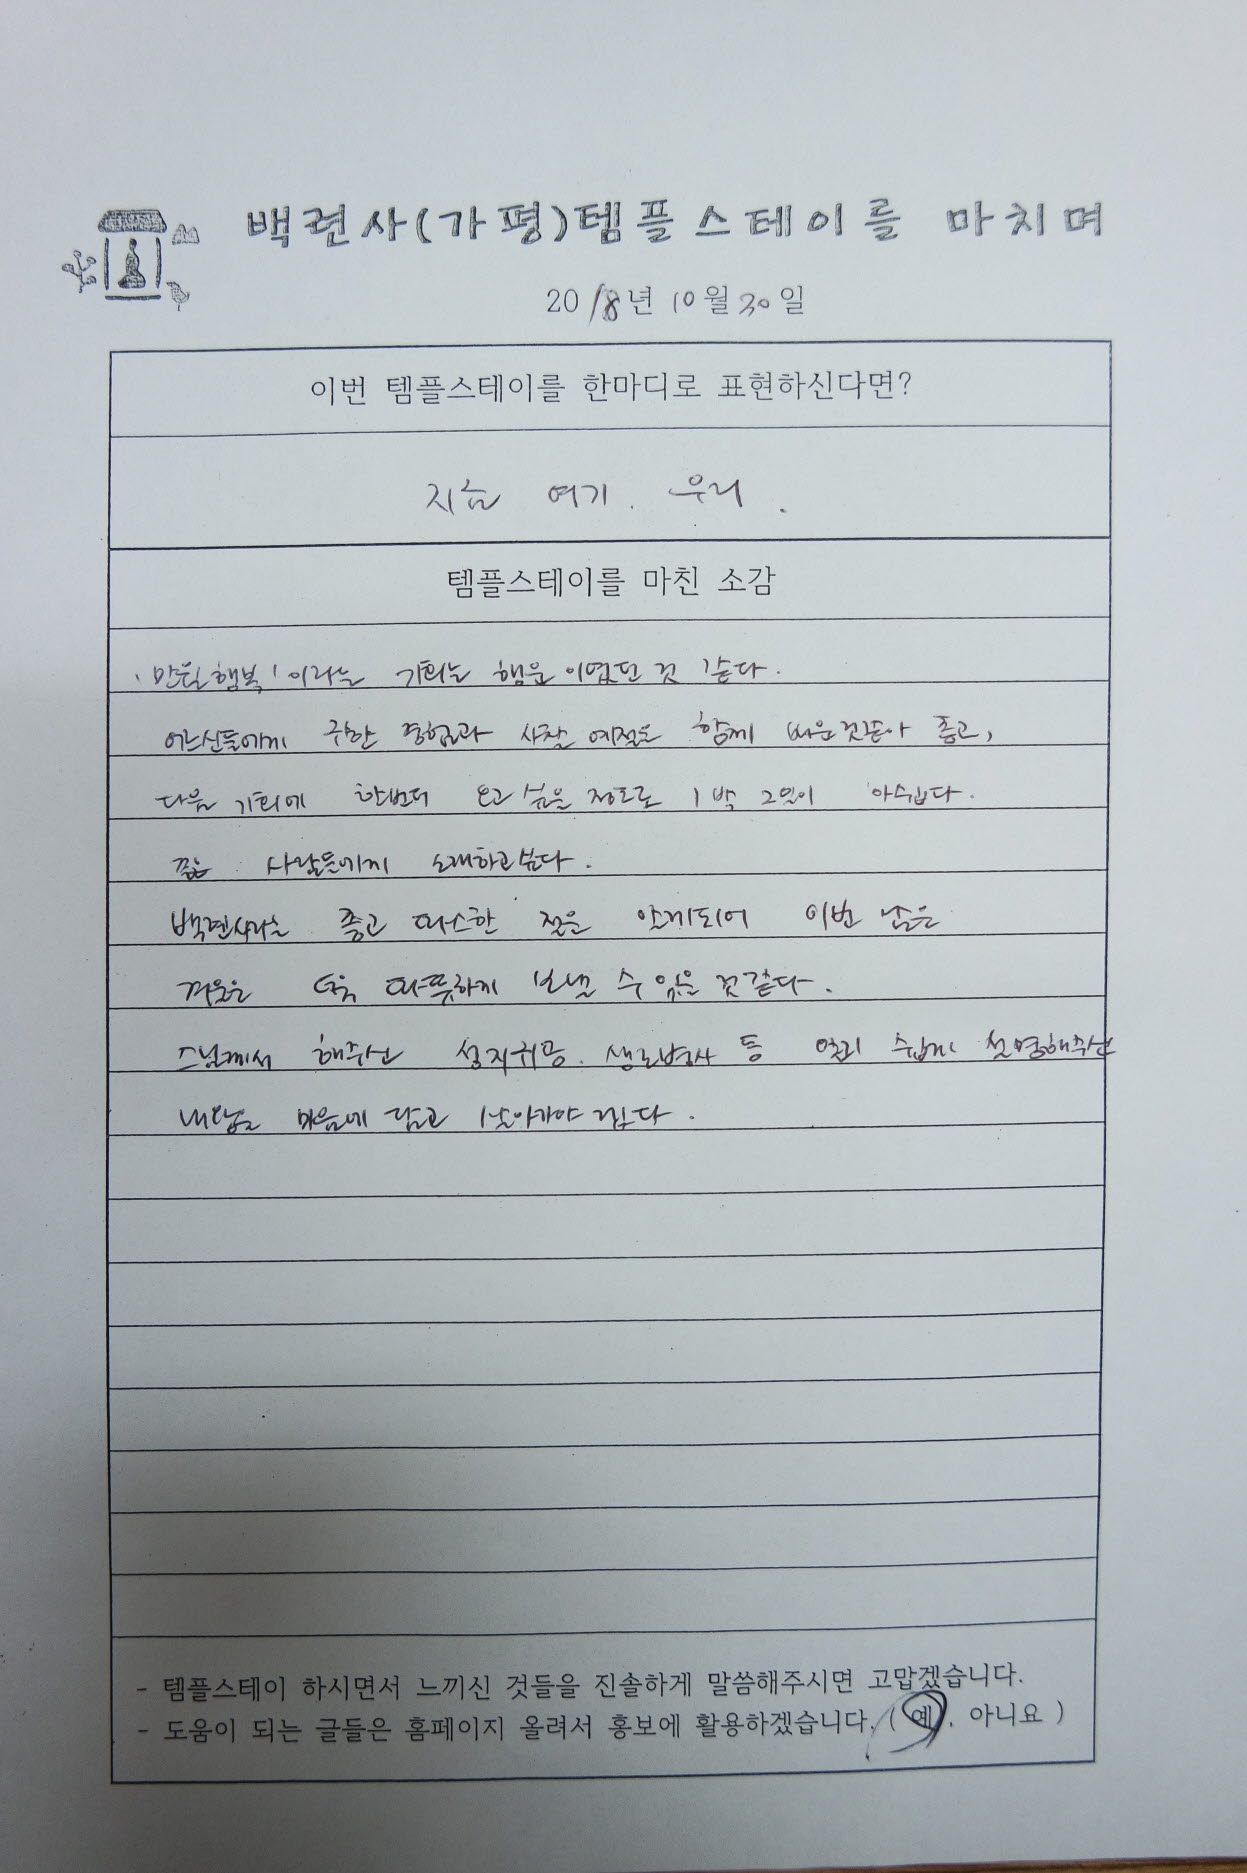 백련사(가평)템플스테이를 마치며
2018년 10월 30일
이번 템플스테이를 한마디로 표현하신다면?
지금 여기. 우리.
템플스테이를 마친 소감
'만원행복'이라는 기회는 행운이였던 것 같다.
어르신들에게 귀한 경험과 사찰 예절을 함께 배운것같아 좋고,
다음 기회에 한번더 오고 싶을 정도로 1박 2일이 아쉽다.
사람들에게 소개하고싶다.
백련사라는 좋고 따스한 절을 알게되어 이번 남은
겨울은 더욱 따뜻하게 보낼 수 있을 것같다.
스님께서 해주신 성지귀공. 생로병사 등 쉽게 설명해주신
내용을 마음에 담고 살아가야 겠다.
- 템플스테이 하시면서 느끼신 것들을 진솔하게 말씀해주시면 고맙겠습니다.
- 도움이 되는 글들은 홈페이지 올려서 홍보에 활용하겠습니다. ( 예 . 아니요 )